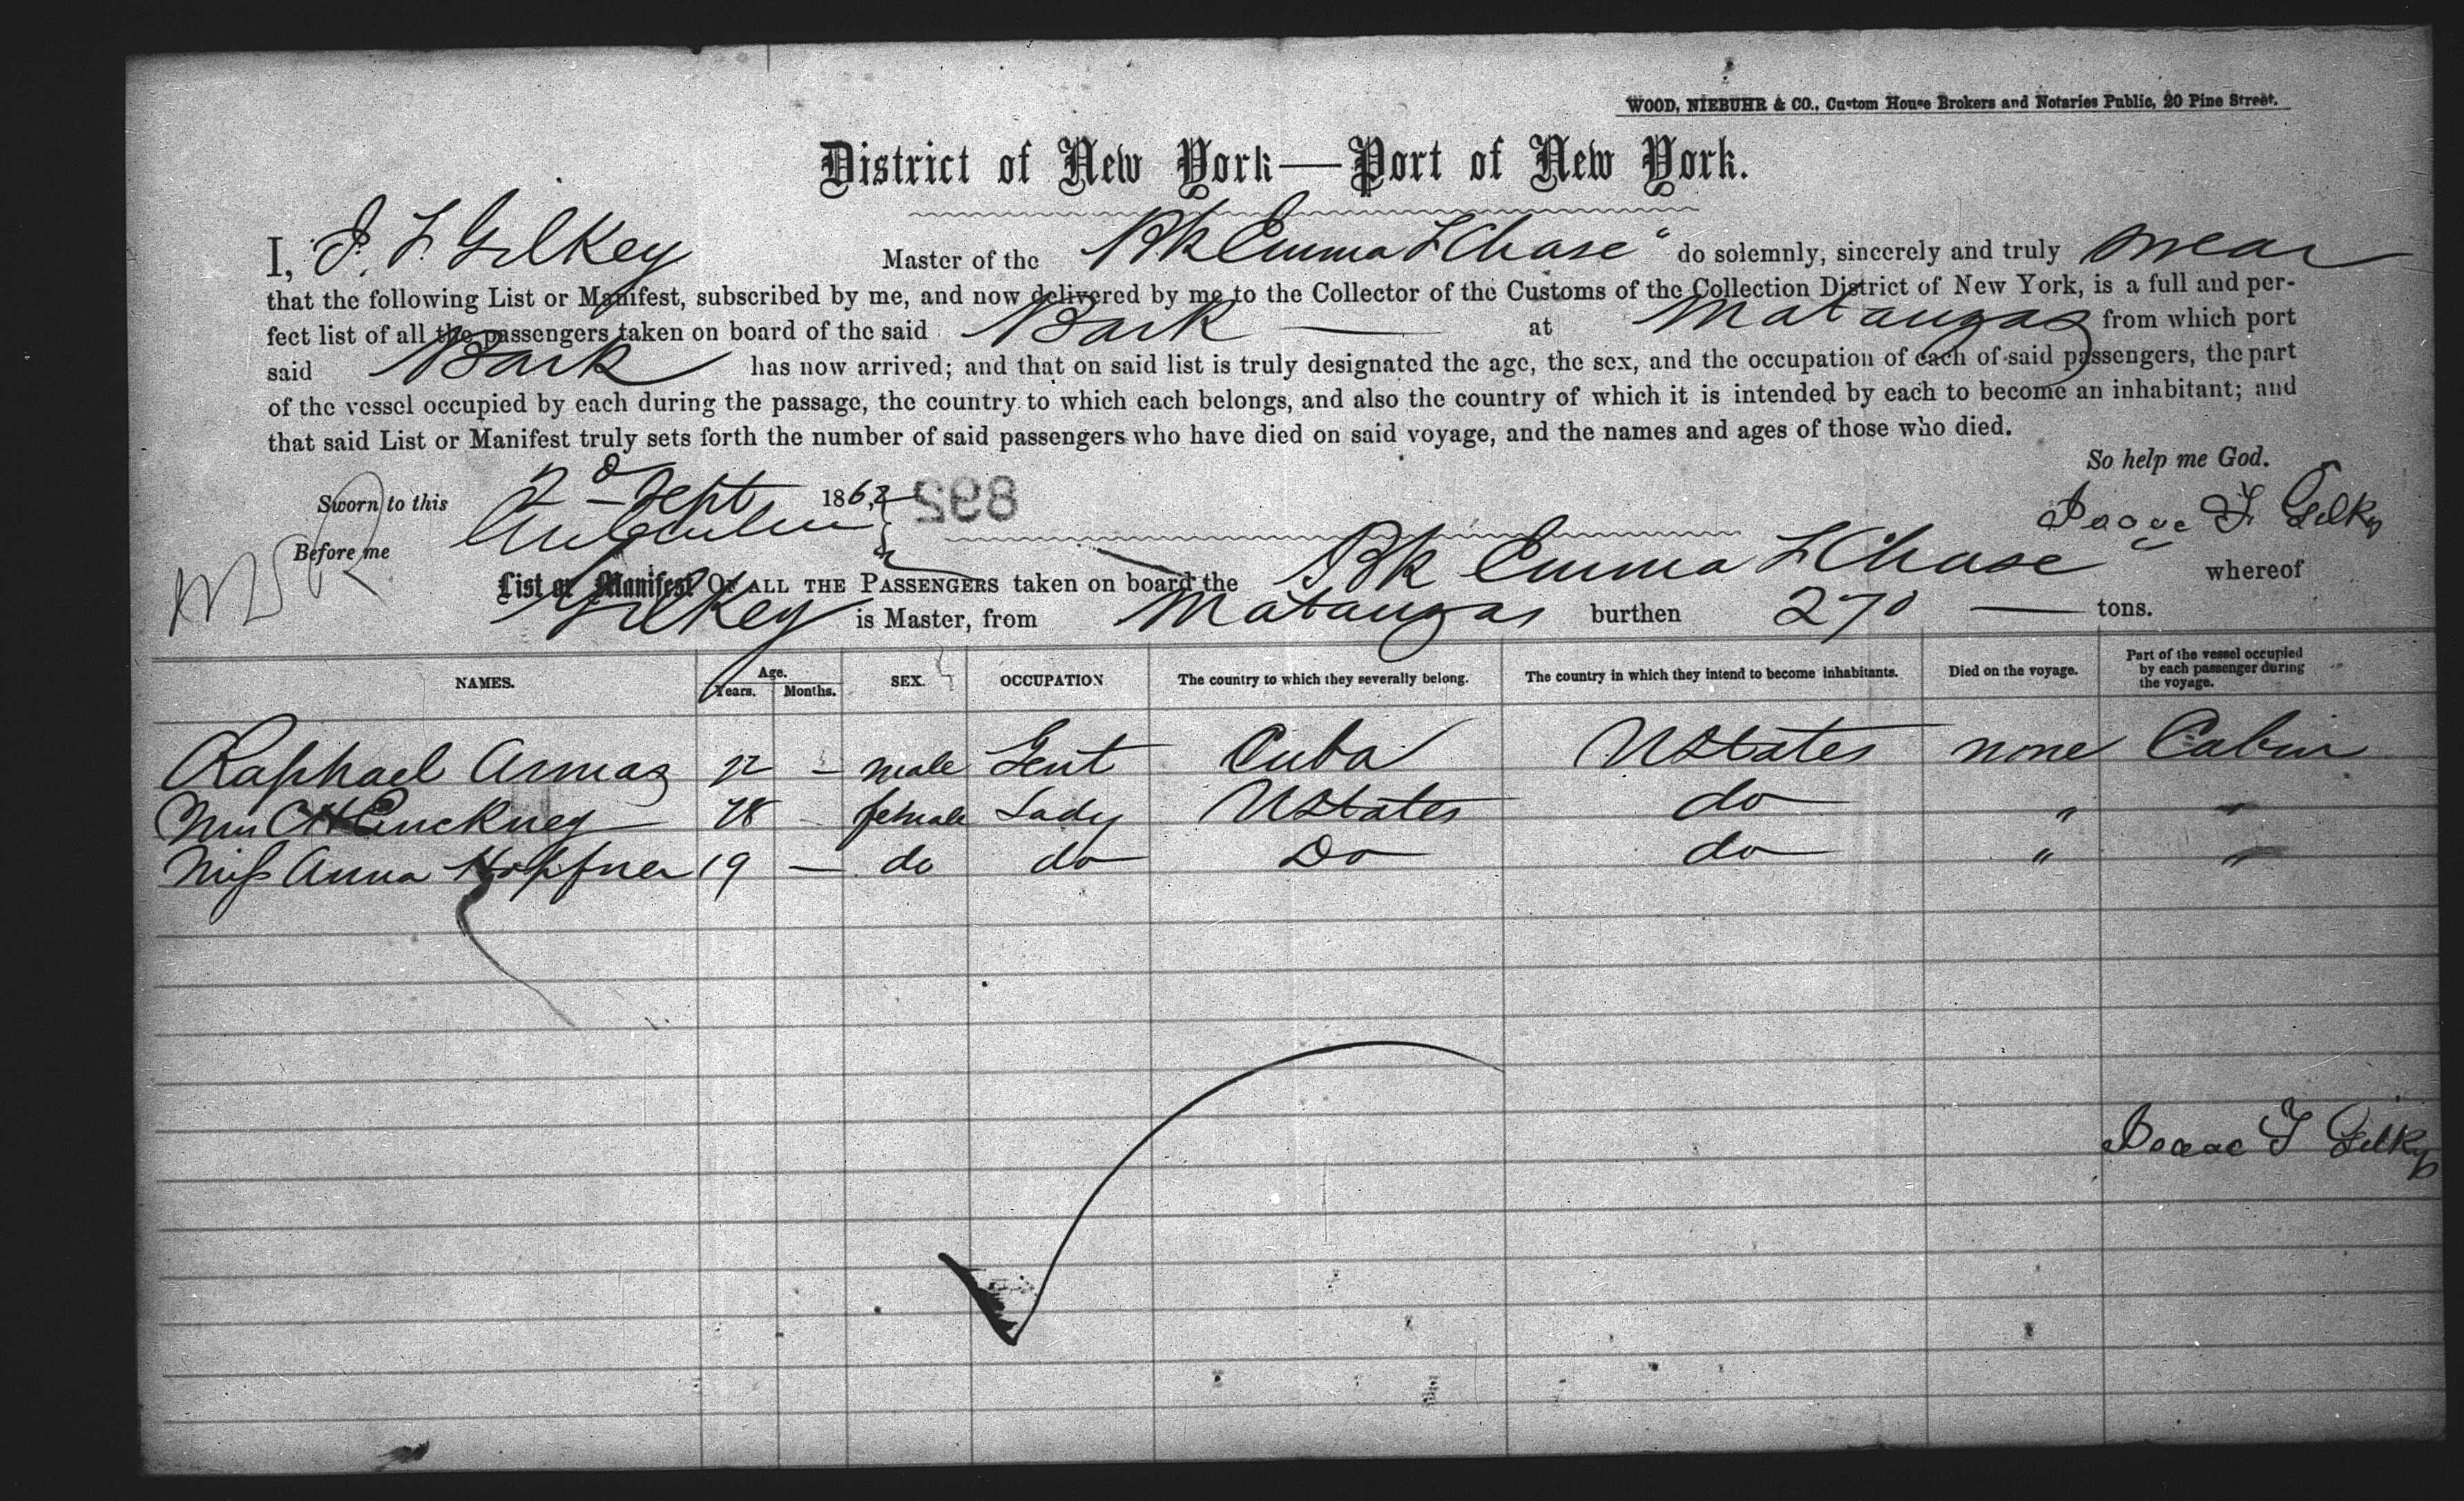 WOOD, NIEBUHR & CO., Custom House Brokers and Notaries Public, 20 Pine Street.
District of New York—Port of New York.
I, I. F. Gilkey Master of the Bk Emma L Chase" do solemnly, sincerely and truly swear
that the following List or Manifest, subscribed by me, and now delivered by me to the Collector of the Customs of the Collection District of New York, is a full and per-
fect list of all the passengers taken on board of the said Bark at Matanzas from which port
said Bark has now arrived; and that on said list is truly designated the age, the sex, and the occupation of each of said passengers, the part
of the vessel occupied by each during the passage, the country to which each belongs, and also the country of which it is intended by each to become an inhabitant; and
that said List or Manifest truly sets forth the number of said passengers who have died on said voyage, and the names and ages of those who died.
So help me God.
Sworn to this 2d Sept 1862 892 Isaac F. Gilky
Before me
List or Manifest OF ALL THE PASSENGERS taken on board the Bk Emma L Chase" whereof
Gilkey is Master, from Matanzas burthen 270 — tons.
NAMES. Age. Years. Months. SEX. OCCUPATION The country to which they severally belong. The country in which they intend to become inhabitants. Died on the voyage. Part of the vessel occupied by each passenger during the voyage.
Raphael Armas 12 - male Gent Cuba UStates none Cabin
Mrs C H Pinckney 28 - female Lady UStates do " "
Miss Anna 19 — do do Do do " "
Isaac F Gilky